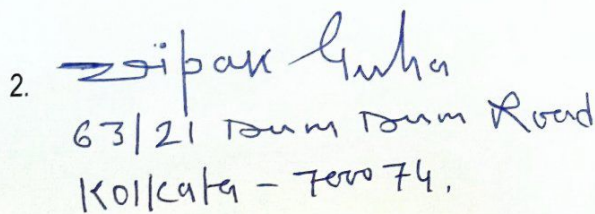 2. Dipak Guha
63/21 Dum Dum Road
Kolkata - 700074.